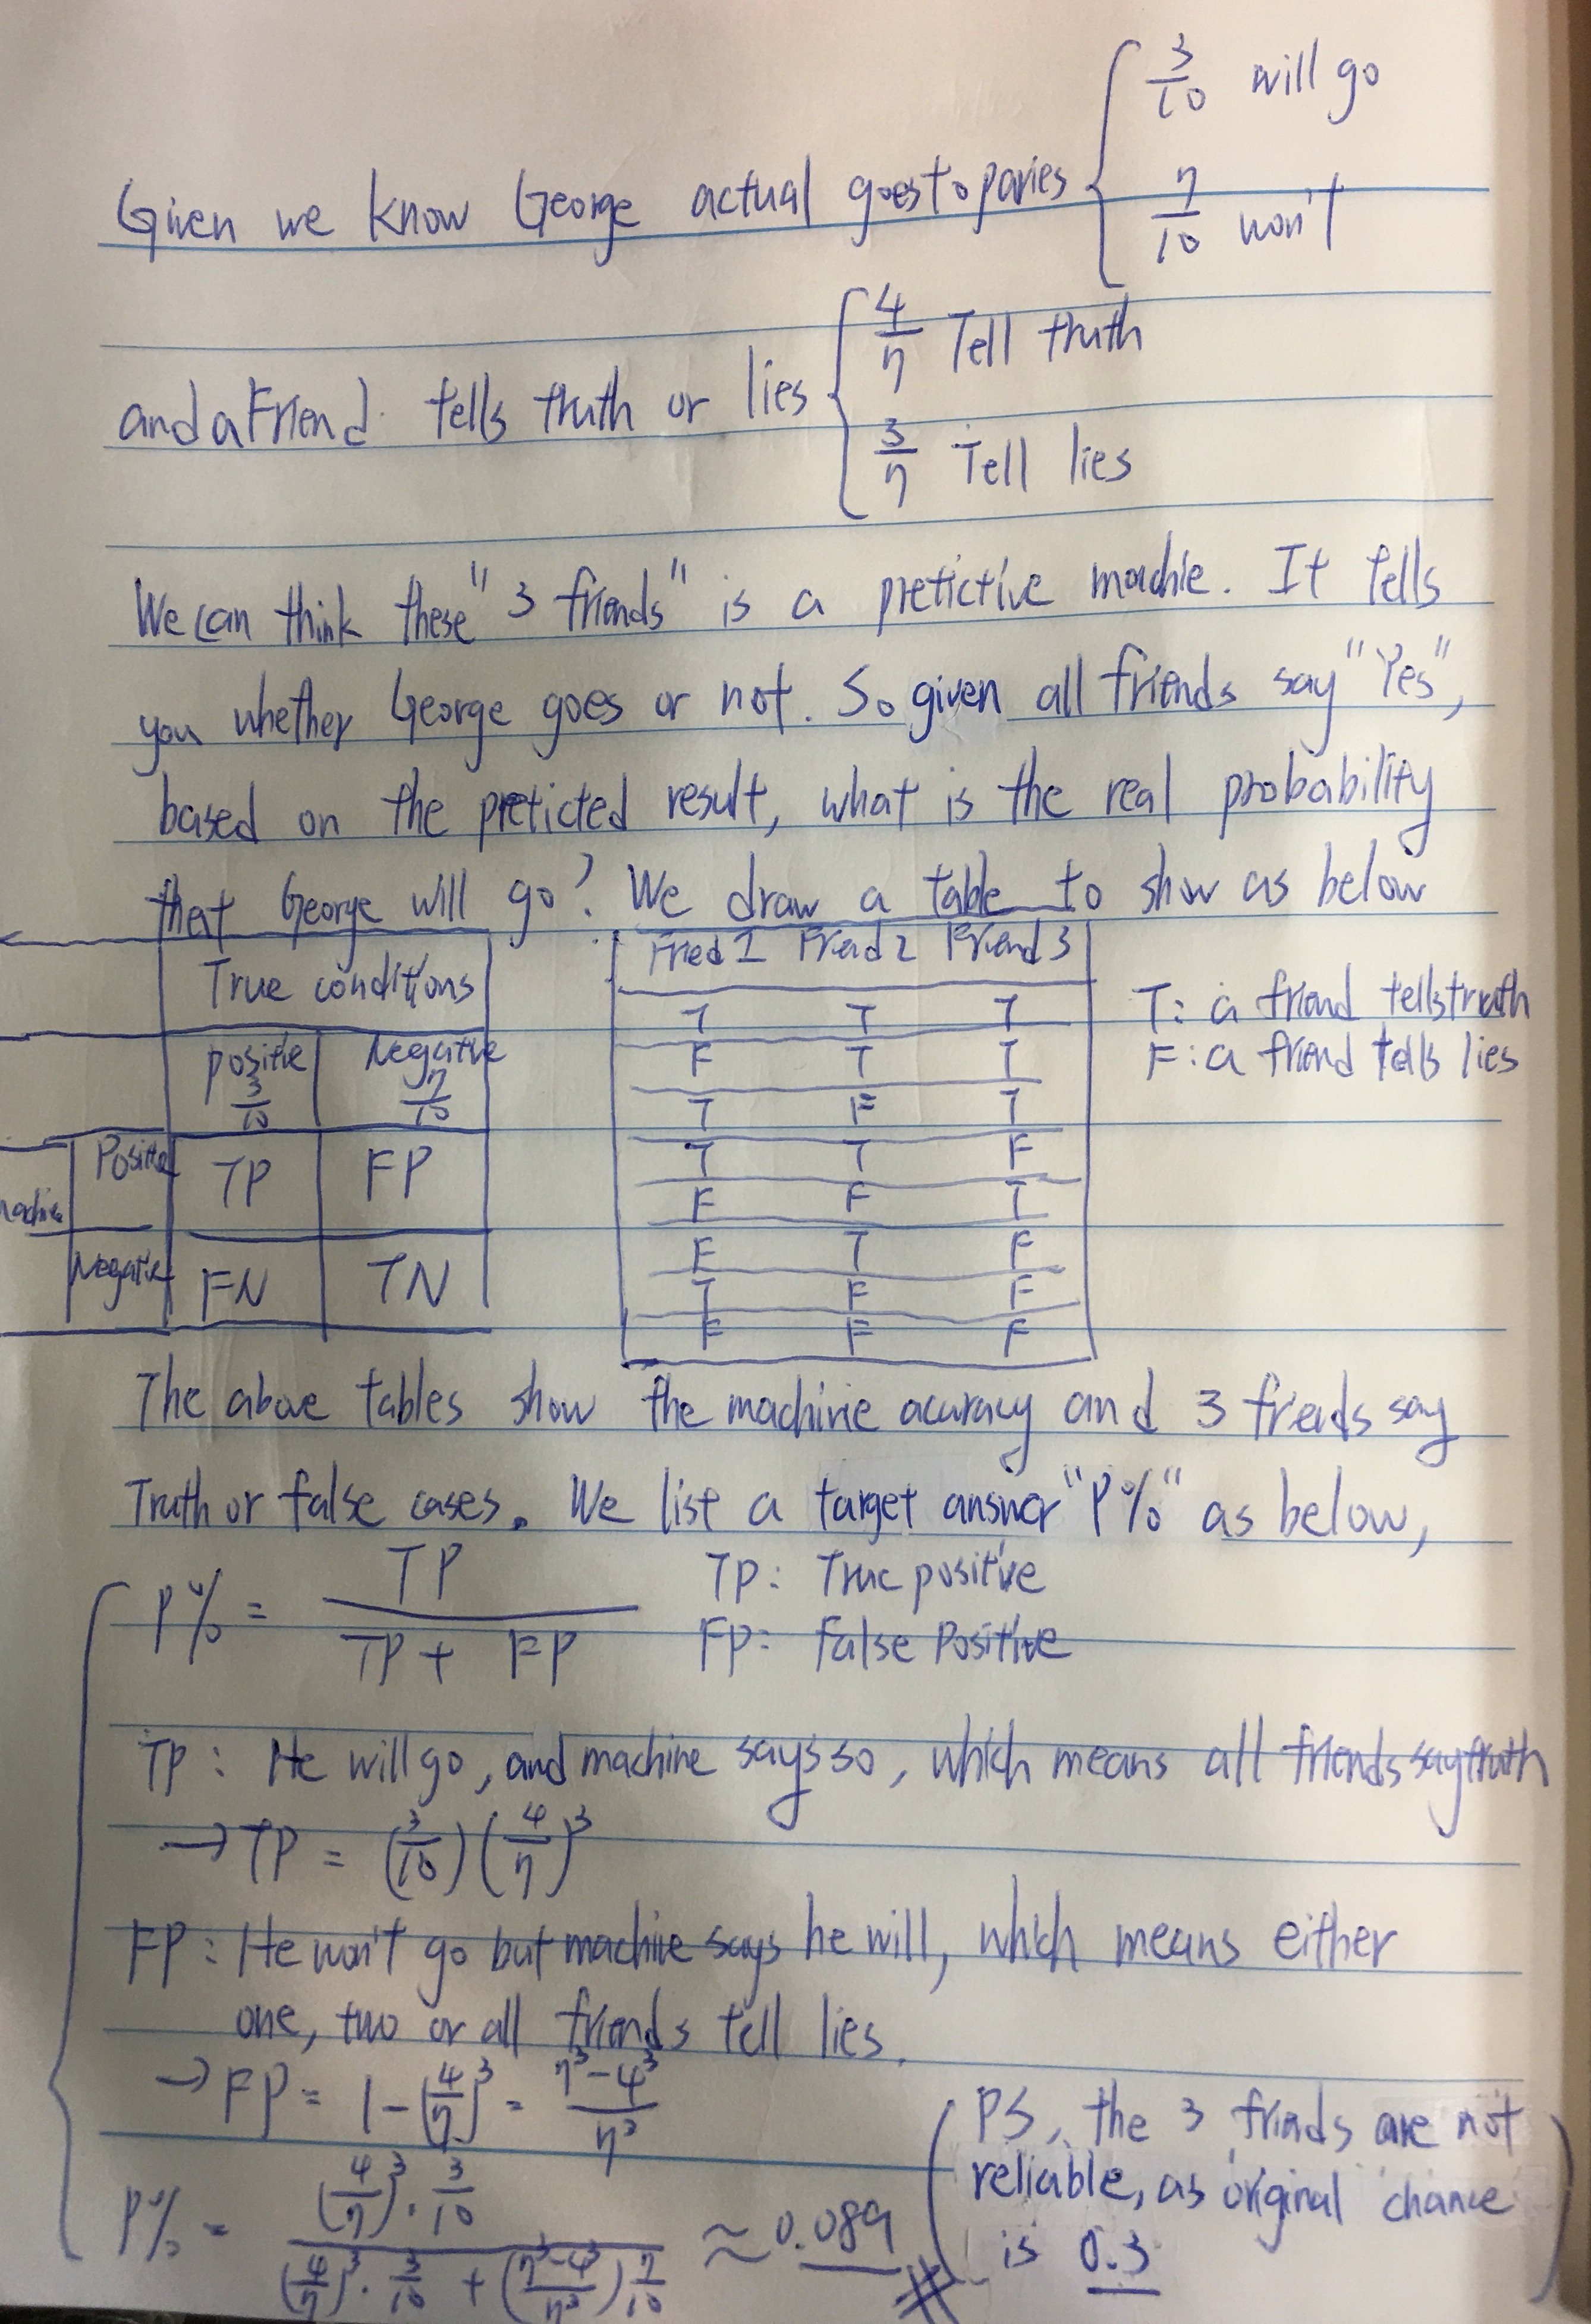 3/10 will go
Given we know George actual goes to paries
7/10 won't
4/7 Tell truth
and a Friend tells truth or lies
3/7 Tell lies
We can think these "3 friends" is a pretictive machie. It tells
you whether George goes or not. So given all friends say "Yes",
based on the preticted result, what is the real probability
that George will go? We draw a table to show as below
True conditions
positive 3/10 Negative 7/10
Positive TP FP
machine
Negative FN TN
Fried 1 Friend 2 Friend 3
T T T
F T T
T F T
T T F
F F T
F T F
T F F
F F F
T: a friend tells truth
F: a friend tells lies
The above tables show the machine acuracy and 3 friends say
Truth or false cases. We list a target answer "P%" as below,
P% = TP / (TP + FP)
TP: True positive
FP: False Positive
TP: He will go, and machine says so, which means all friends say truth
→ TP = (3/10)(4/7)^3
FP: He won't go but machine says he will, which means either
one, two or all friends tell lies.
→ FP = 1-(4/7)^3 = (7^3-4^3)/7^3
P% = ((4/7)^3 · 3/10) / ((4/7)^3 · 3/10 + ((7^3-4^3)/7^3) 7/10) ≈ 0.089 #
(PS, the 3 friends are not
reliable, as original chance
is 0.3)